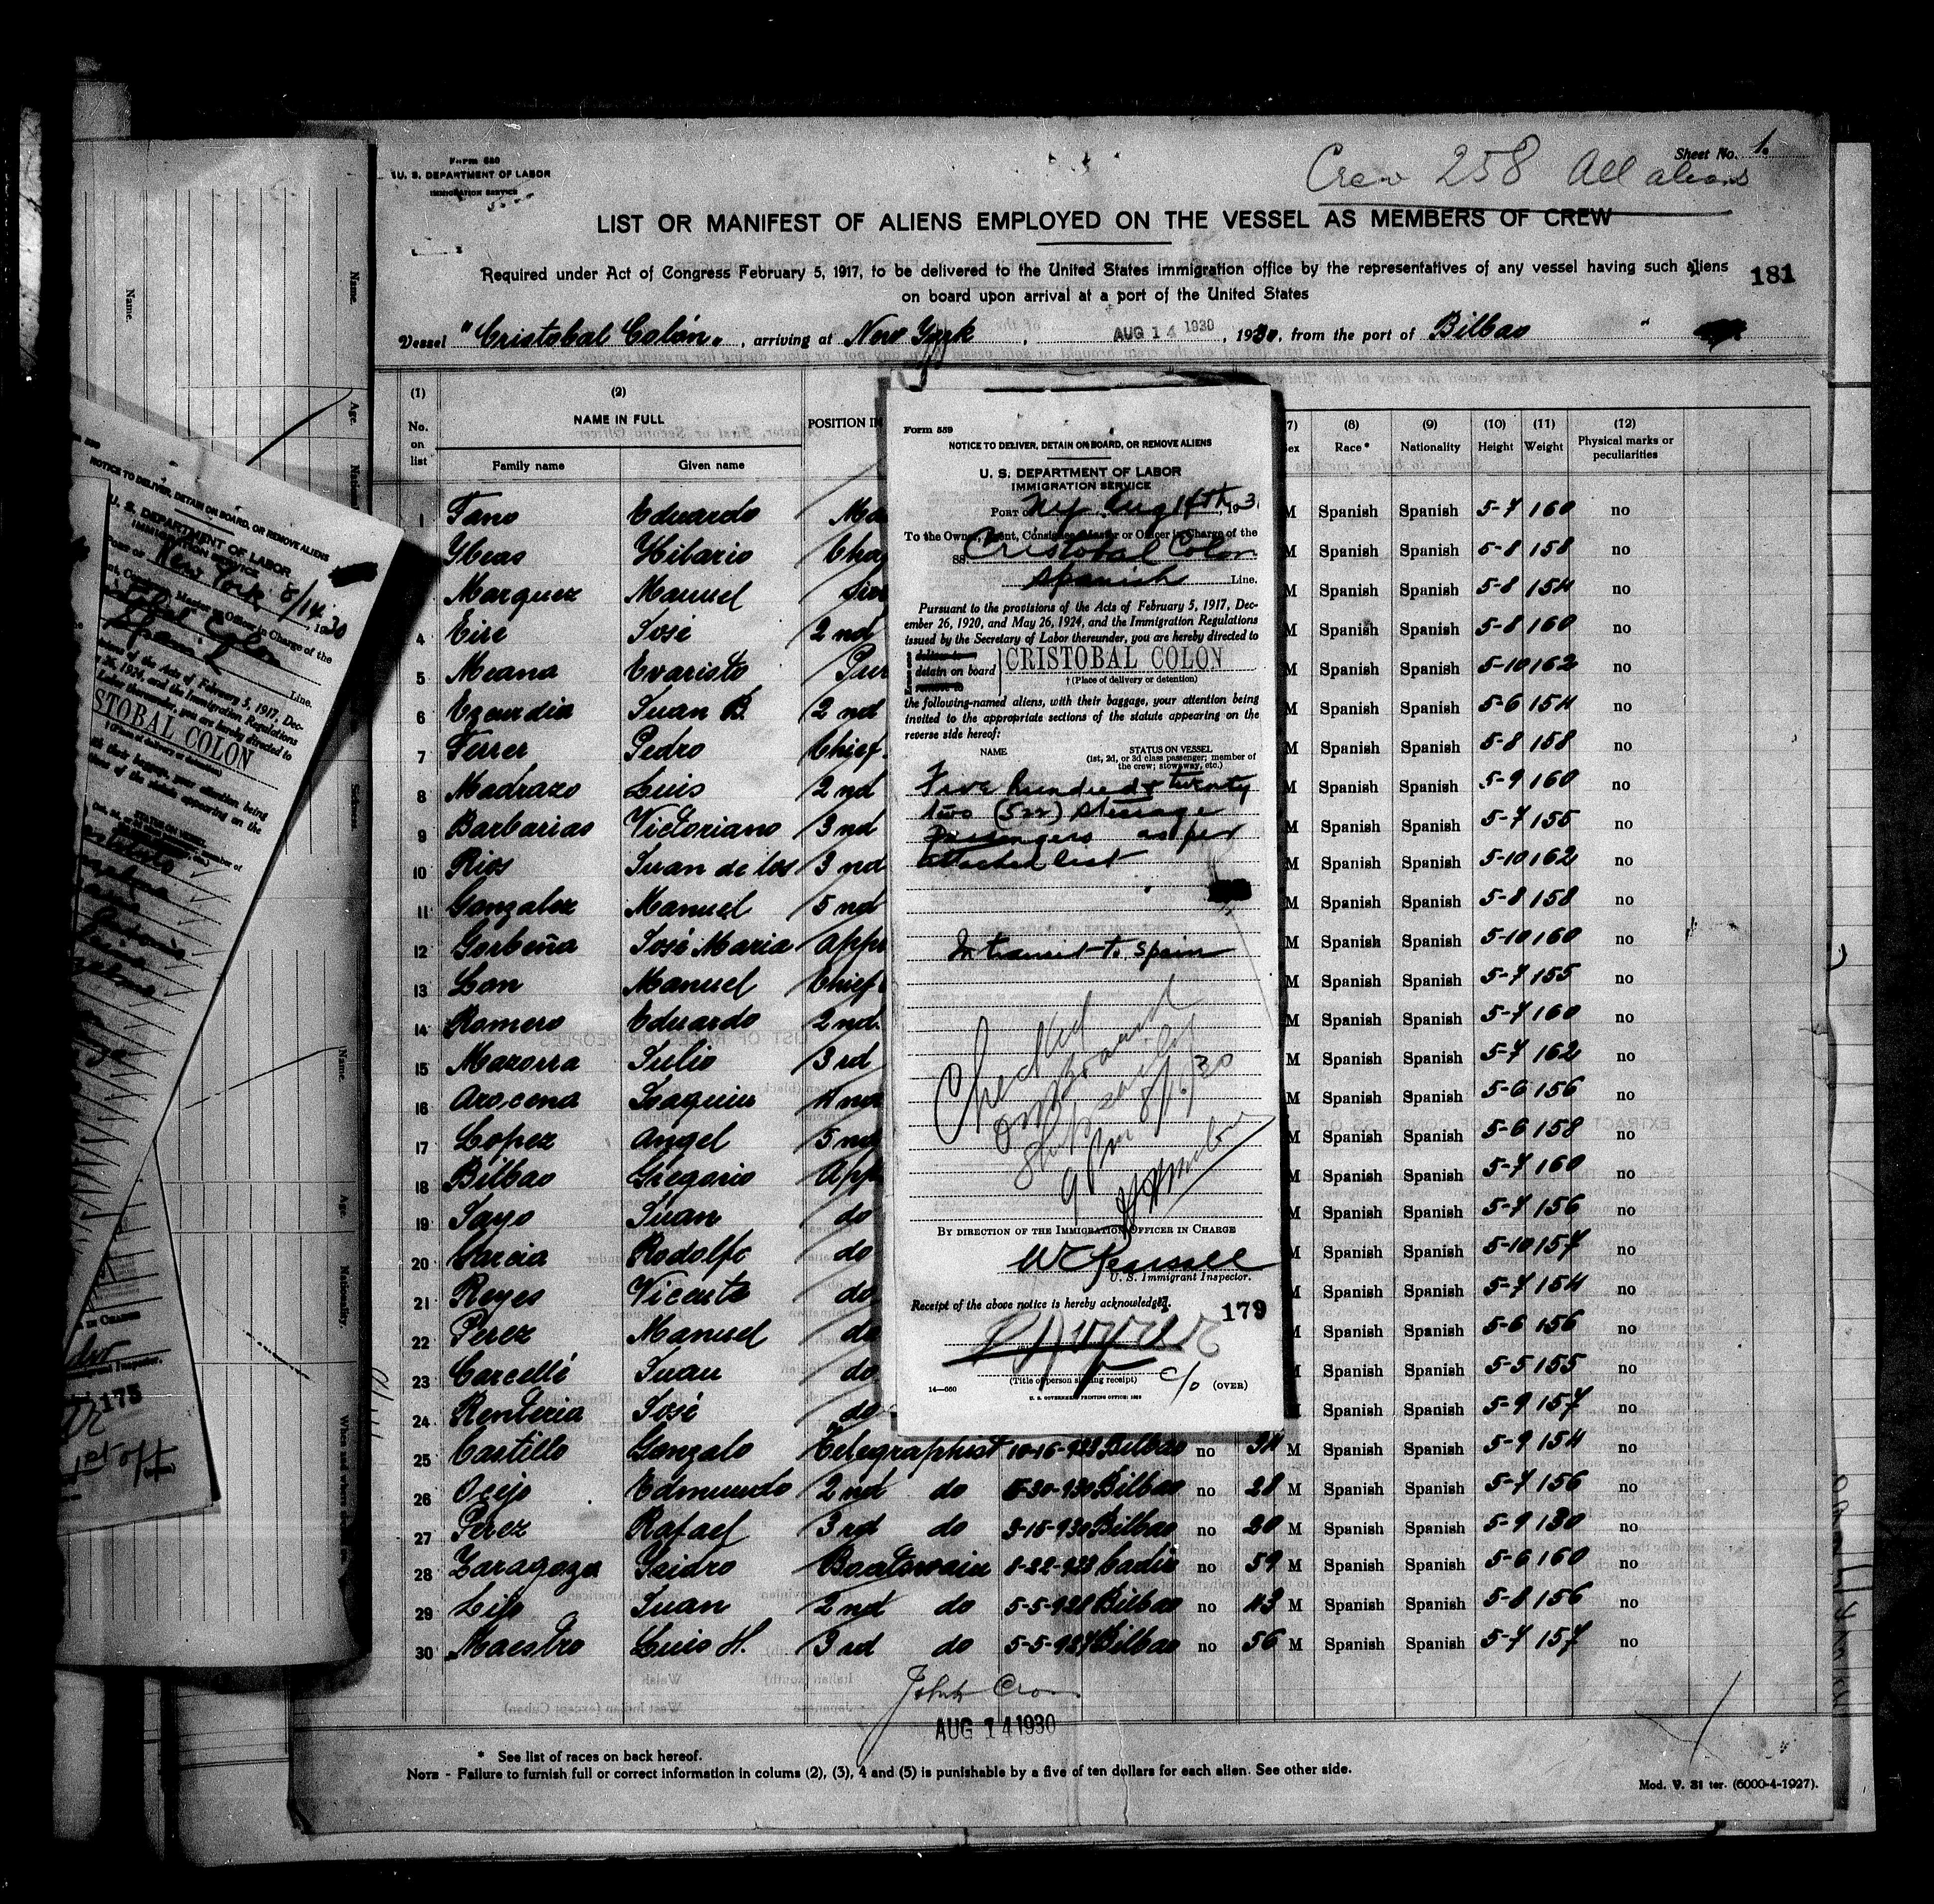 Form 680
U. S. DEPARTMENT OF LABOR
IMMIGRATION SERVICE
Sheet No. 1.
Crew 258 All aliens
LIST OR MANIFEST OF ALIENS EMPLOYED ON THE VESSEL AS MEMBERS OF CREW
Required under Act of Congress February 5, 1917, to be delivered to the United States immigration office by the representatives of any vessel having such aliens
on board upon arrival at a port of the United States
181
Vessel "Cristobal Colón", arriving at New York, AUG 14 1930, 1930, from the port of Bilbao
(1) (2) (7) (8) (9) (10) (11) (12)
No. on list NAME IN FULL POSITION IN Race* Nationality Height Weight Physical marks or peculiarities
Family name Given name
1 Fano Eduardo Ma M Spanish Spanish 5-7 160 no
Ybeas Hilario Cha M Spanish Spanish 5-8 158 no
Marquez Manuel M Spanish Spanish 5-8 154 no
4 Eire José 2nd M Spanish Spanish 5-8 160 no
5 Meana Evaristo Pur M Spanish Spanish 5-10 162 no
6 Ezcurdia Juan B. 2nd M Spanish Spanish 5-6 154 no
7 Ferrer Pedro Chief M Spanish Spanish 5-8 158 no
8 Madrazo Luis 2nd M Spanish Spanish 5-9 160 no
9 Barbarias Victoriano 3nd M Spanish Spanish 5-7 155 no
10 Rios Juan de los 3nd M Spanish Spanish 5-10 162 no
11 Gonzalez Manuel 5nd M Spanish Spanish 5-8 158 no
12 Gorbeña José Maria Appr M Spanish Spanish 5-10 160 no
13 Lan Manuel Chief M Spanish Spanish 5-7 155 no
14 Romero Eduardo 2nd. M Spanish Spanish 5-7 160 no
15 Mazorra Julio 3rd M Spanish Spanish 5-7 162 no
16 Arocena Joaquin 4nd M Spanish Spanish 5-6 156 no
17 Lopez Angel 5nd M Spanish Spanish 5-6 158 no
18 Bilbao Gregorio App M Spanish Spanish 5-7 160 no
19 Sayo Juan do M Spanish Spanish 5-7 156 no
20 Garcia Rodolfo do M Spanish Spanish 5-10 157 no
21 Reyes Vicente do M Spanish Spanish 5-7 154 no
22 Perez Manuel do M Spanish Spanish 5-6 156 no
23 Carcellé Juan do M Spanish Spanish 5-5 155 no
24 Renteria José do M Spanish Spanish 5-9 157 no
25 Castillo Gonzalo Telegraphist 10-16-928 Bilbao no 34 M Spanish Spanish 5-9 154 no
26 Ocejo Edmundo 2nd do 5-30-930 Bilbao no 28 M Spanish Spanish 5-7 156 no
27 Perez Rafael 3rd do 3-15-930 Bilbao no 20 M Spanish Spanish 5-9 130 no
28 Zaragoza Isidro Boatswain 1-22-928 Cadiz no 59 M Spanish Spanish 5-6 160 no
29 Lijo Juan 2nd do 5-5-928 Bilbao no 43 M Spanish Spanish 5-8 156 no
30 Maestro Luis H. 3rd do 5-5-927 Bilbao no 56 M Spanish Spanish 5-7 157 no
John
AUG 14 1930
* See list of races on back hereof.
NOTE - Failure to furnish full or correct information in colums (2), (3), 4 and (5) is punishable by a five of ten dollars for each alien. See other side.
Mod. V. 31 ter. (6000-4-1927).
Form 559
NOTICE TO DELIVER, DETAIN ON BOARD, OR REMOVE ALIENS
U. S. DEPARTMENT OF LABOR
IMMIGRATION SERVICE
PORT OF NY Aug 14th, 193
To the Owner, Agent, Consignee, Master or Officer in Charge of the
SS. Cristobal Colon
Spanish Line.
Pursuant to the provisions of the Acts of February 5, 1917, Dec-
ember 26, 1920, and May 26, 1924, and the Immigration Regulations
issued by the Secretary of Labor thereunder, you are hereby directed to
detain on board CRISTOBAL COLON
†(Place of delivery or detention)
the following-named aliens, with their baggage, your attention being
invited to the appropriate sections of the statute appearing on the
reverse side hereof:
NAME STATUS ON VESSEL
(1st, 2d, or 3d class passenger; member of
the crew; stowaway, etc.)
Five hundred & twenty
two (522) steerage
passengers as per
attached list
In transit to Spain
Checked
on board
ship sailed
9 Pm 8/16/30
BY DIRECTION OF THE IMMIGRATION OFFICER IN CHARGE
U. S. Immigrant Inspector.
Receipt of the above notice is hereby acknowledged.
179
(Title of person signing receipt) c/o (OVER)
14—660
U. S. GOVERNMENT PRINTING OFFICE: 1929
NOTICE TO DELIVER, DETAIN ON BOARD, OR REMOVE ALIENS
U. S. DEPARTMENT OF LABOR
IMMIGRATION SERVICE
PORT OF New York 8/14, 1930
Master or Officer in Charge of the
Line.
Acts of February 5, 1917, Dec-
26, 1924, and the Immigration Regulations
Labor thereunder, you are hereby directed to
STOBAL COLON
†(Place of delivery or detention)
with their baggage, your attention being
sections of the statute appearing on the
175
Name.
Name.
Age.
Name.
Age.
Nationality.